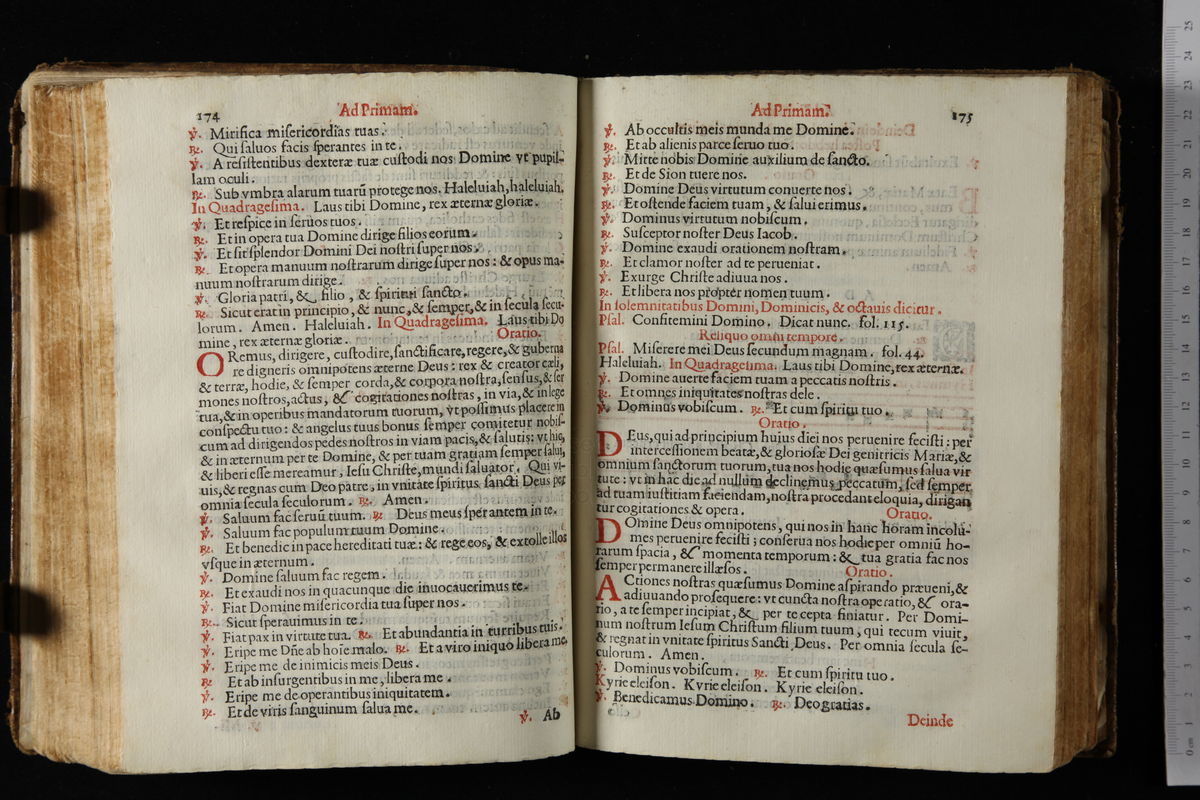 174
Ad Primam.
℣. Mirifica miſericordias tuas.
℟. Qui ſaluos facis ſperantes in te.
℣. A reſiſtentibus dexteræ tuæ cuſtodi nos Domine vt pupil-
lam oculi.
℟. Sub vmbra alarum tuarū protege nos. Haleluiah, haleluiah.
In Quadrageſima. Laus tibi Domine, rex æternæ gloriæ.
℣. Et reſpice in ſeruos tuos.
℟. Et in opera tua Domine dirige filios eorum.
℣. Et ſit ſplendor Domini Dei noſtri ſuper nos.
℟. Et opera manuum noſtrarum dirige ſuper nos: & opus ma-
nuum noſtrarum dirige.
℣. Gloria patri, & filio, & ſpiritui ſancto.
℟. Sicut erat in principio, & nunc, & ſemper, & in ſecula ſecu-
lorum. Amen. Haleluiah. In Quadrageſima. Laus tibi Do
mine, rex æternæ gloriæ. Oratio.
ORemus, dirigere, cuſtodire, ſanctificare, regere, & guberna
re digneris omnipotens æterne Deus: rex & creator cæli,
& terræ, hodie, & ſemper corda, & corpora noſtra, ſenſus, & ſer
mones noſtros, actus, & cogitationes noſtras, in via, & in lege
tua, & in operibus mandatorum tuorum, vt poſſimus placere in
conſpectu tuo: & angelus tuus bonus ſemper comitetur nobiſ-
cum ad dirigendos pedes noſtros in viam pacis, & ſalutis: vt hic,
& in æternum per te Domine, & per tuam gratiam ſemper ſalui,
& liberi eſſe mereamur, Ieſu Chriſte, mundi ſaluator. Qui vi-
uis, & regnas cum Deo patre, in vnitate ſpiritus ſancti Deus per
omnia ſecula ſeculorum. ℟. Amen.
℣. Saluum fac ſeruū tuum. ℟. Deus meus ſperantem in te.
℣. Saluum fac populum tuum Domine.
℟. Et benedic in pace hereditati tuæ: & rege eos, & extolle illos
vſque in æternum.
℣. Domine ſaluum fac regem.
℟. Et exaudi nos in quacunque die inuocauerimus te.
℣. Fiat Domine miſericordia tua ſuper nos.
℟. Sicut ſperauimus in te.
℣. Fiat pax in virtute tua. ℟. Et abundantia in turribus tuis.
℣. Eripe me Dñe ab hoīe malo. ℟. Et a viro iniquo libera me.
℣. Eripe me de inimicis meis Deus.
℟. Et ab inſurgentibus in me, libera me.
℣. Eripe me de operantibus iniquitatem.
℟. Et de viris ſanguinum ſalua me.
℣. Ab
Ad Primam.
175
℣. Ab occultis meis munda me Domine.
℟. Et ab alienis parce ſeruo tuo.
℣. Mitte nobis Domine auxilium de ſancto.
℟. Et de Sion tuere nos.
℣. Domine Deus virtutum conuerte nos.
℟. Et oſtende faciem tuam, & ſalui erimus.
℣. Dominus virtutum nobiſcum.
℟. Suſceptor noſter Deus Iacob.
℣. Domine exaudi orationem noſtram.
℟. Et clamor noſter ad te perueniat.
℣. Exurge Chriſte adiuua nos.
℟. Et libera nos propter nomen tuum.
In ſolemnitatibus Domini, Dominicis, & octauis dicitur.
Pſal. Confitemini Domino. Dicat nunc. fol. 115.
Reliquo omni tempore.
Pſal. Miſerere mei Deus ſecundum magnam. fol. 44.
Haleluiah. In Quadrageſima. Laus tibi Domine, rex æternæ.
℣. Domine auerte faciem tuam a peccatis noſtris.
℟. Et omnes iniquitates noſtras dele.
℣. Dominus vobiſcum. ℟. Et cum ſpiritu tuo.
Oratio.
DEus, qui ad principium huius diei nos peruenire feciſti: per
interceſſionem beatæ, & glorioſæ Dei genitricis Mariæ, &
omnium ſanctorum tuorum, tua nos hodie quæſumus ſalua vir
tute: vt in hac die ad nullum declinemus peccatum, ſed ſemper
ad tuam iuſtitiam faciendam, noſtra procedant eloquia, dirigan
tur cogitationes & opera. Oratio.
DOmine Deus omnipotens, qui nos in hanc horam incolu-
mes peruenire feciſti: conſerua nos hodie per omniū ho-
rarum ſpacia, & momenta temporum: & tua gratia fac nos
ſemper permanere illæſos. Oratio.
ACtiones noſtras quæſumus Domine aſpirando præueni, &
adiuuando proſequere: vt cuncta noſtra operatio, & ora-
tio, a te ſemper incipiat, & per te cepta finiatur. Per Domi-
num noſtrum Ieſum Chriſtum filium tuum, qui tecum viuit,
& regnat in vnitate ſpiritus Sancti Deus. Per omnia ſecula ſe-
culorum. Amen.
℣. Dominus vobiſcum. ℟. Et cum ſpiritu tuo.
Kyrie eleiſon. Kyrie eleiſon. Kyrie eleiſon.
℣. Benedicamus Domino. ℟. Deo gratias.
Deinde